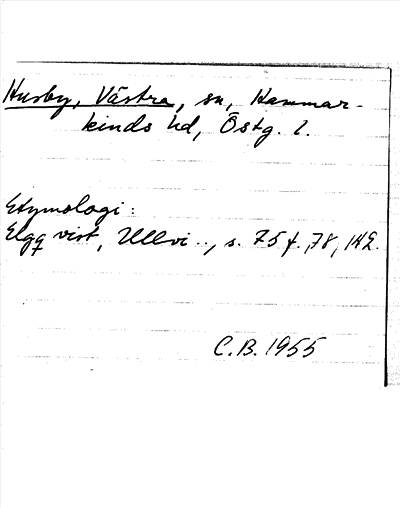 Husby, Västra, sn, Hammar-
kinds hd, Östg. l.
Etymologi:
Elgqvist, Ullvi.., s. 75 f., 78, 142.
C.B. 1955